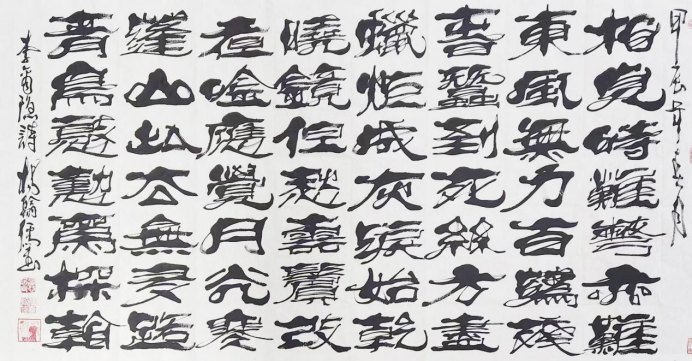 甲辰年月
相見時難別亦難
東風無力百花殘
春蠶到死絲方盡
蠟炬成灰淚始乾
曉鏡但愁雲鬢改
夜吟應覺月光寒
蓬山此去無多路
青鳥殷勤為探看
李商隱詩 楊翰儒書